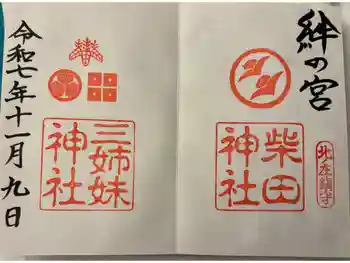 絆の宮
柴田神社
北の庄鎮守
三姉妹神社
令和七年十一月九日